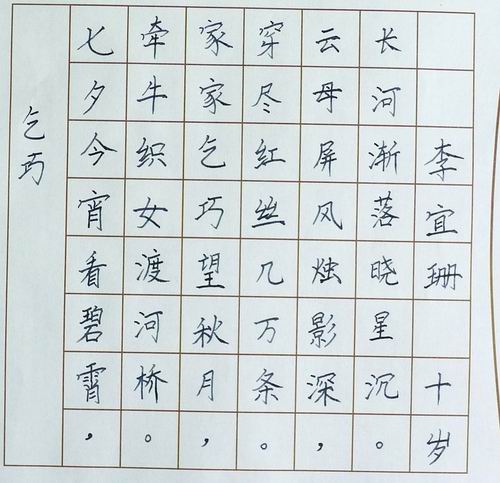 乞巧
七夕今宵看碧霄，
牵牛织女渡河桥。
家家乞巧望秋月，
穿尽红丝几万条。
云母屏风烛影深，
长河渐落晓星沉。
李宜珊 十岁